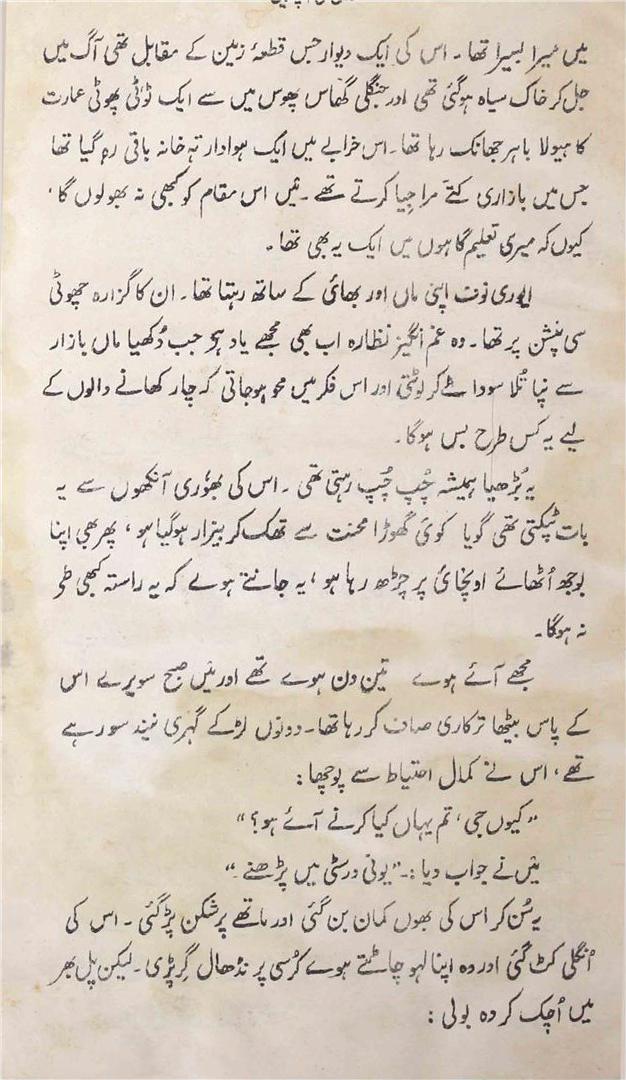 میں میرا بسیرا تھا ۔ اس کی ایک دیوار جس قطعۂ زمین کے مقابل تھی آگ میں
جل کر خاک سیاہ ہوگئی تھی اور جنگلی گھاس پھوس میں سے ایک ٹوٹی پھوٹی عمارت
کا ہیولا باہر جھانک رہا تھا۔ اس خرابے میں ایک ہوادار تہ خانہ باقی رہ گیا تھا
جس میں بازاری کتے مرا جیا کرتے تھے ۔ میں اس مقام کو کبھی نہ بھولوں گا ،
کیوں کہ میری تعلیم گاہوں میں ایک یہ بھی تھا ۔
ایوری نوف اپنی ماں اور بھائی کے ساتھ رہتا تھا ۔ ان کا گزارہ چھوٹی
سی پنشن پر تھا ۔ وہ غم انگیز نظارہ اب بھی مجھے یاد ہے جب دُکھیا ماں بازار
سے نپا تُلا سودا لے کر لوٹتی اور اس فکر میں محو ہوجاتی کہ چار کھانے والوں کے
لیے یہ کس طرح بس ہوگا ۔
یہ بُڑھیا ہمیشہ چُپ چُپ رہتی تھی ۔ اس کی بھوُری آنکھوں سے یہ
بات ٹپکتی تھی گویا کوئی گھوڑا محنت سے تھک کر بیزار ہوگیا ہو ، پھر بھی اپنا
بوجھ اُٹھائے اونچائی پر چڑھ رہا ہو ، یہ جانتے ہوے کہ یہ راستہ کبھی طی
نہ ہوگا ۔
مجھے آئے ہوے تین دن ہوے تھے اور میں صبح سویرے اس
کے پاس بیٹھا ترکاری صاف کر رہا تھا۔ دونوں لڑکے گہری نیند سو رہے
تھے ، اس نے کمال احتیاط سے پوچھا :
” کیوں جی ، تم یہاں کیا کرنے آئے ہو ؟ “
میں نے جواب دیا :۔ ” یونی ورسٹی میں پڑھنے ۔ “
یہ سُن کر اس کی بھوں کمان بن گئی اور ماتھے پر شکن پڑ گئی ۔ اس کی
اُنگلی کٹ گئی اور وہ اپنا لہو چاٹتے ہوے کرُسی پر نڈھال گِر پڑی ۔ لیکن پل بھر
میں اُچک کر وہ بولی :